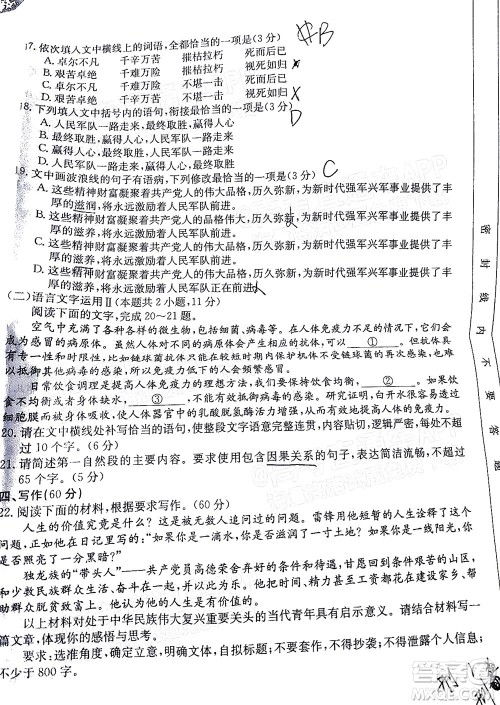 17. 依次填入文中横线上的词语，全都恰当的一项是(3分) B
A. 卓尔不凡 千辛万苦 摧枯拉朽 死而后已
B. 艰苦卓绝 千难万险 摧枯拉朽 视死如归
C. 卓尔不凡 千难万险 不堪一击 视死如归
D. 艰苦卓绝 千辛万苦 不堪一击 死而后已
18. 下列填入文中括号内的语句，衔接最恰当的一项是(3分) D
A. 人民军队一路走来，最终取胜，赢得人心
B. 人民军队一路走来，赢得人心，最终取胜
C. 最终取胜，赢得人心，人民军队一路走来
D. 赢得人心，最终取胜，人民军队一路走来
19. 文中画波浪线的句子有语病，下列修改最恰当的一项是(3分) C
A. 这些精神财富凝聚着共产党人的伟大品格，历久弥新，为新时代强军兴军事业提供了丰
厚的滋润，将永远激励着人民军队前进。
B. 这些精神财富凝聚着共产党人的伟大品格，历久弥新，为新时代强军兴军事业提供了丰
厚的滋养，将永远激励着人民军队前进。
C. 这些精神财富凝聚着共产党人的伟大品格，历久弥新，为新时代强军兴军事业提供了丰
厚的滋养，将永远激励着人民军队前进。
D. 这些精神财富凝聚着共产党人的伟大品格，历久弥新，为新时代强军兴军事业提供了丰
厚的滋养，将永远激励人民军队正在前进。
(二)语言文字运用Ⅱ(本题共2小题,11分)
阅读下面的文字，完成20~21题。
空气中充满了各种各样的微生物，包括细菌、病毒等。在人体免疫力低下时，它们就会
成为感冒的病原体。虽然人体对同一种病原体可能会 ① 。但抗体具
有专一性和时限性，比如链球菌抗体只能在较短时期内保护机体不受链球菌的再次感染，也难
以抵御其他病毒的感染，所以免疫力低下的人会频繁感冒。
日常饮食调理是提高人体免疫力的理想方法，我们需要 ② 。研究表明，饮
食不均衡或者身体缺水， ③ ，无法有效抵御病毒。白开水很容易透过
细胞膜而被身体吸收，使人体器官中的乳酸脱氢酶活力增强，从而有效提高人体免疫力。
20. 请在文中横线处补写恰当的语句，使整段文字语意完整连贯，内容贴切，逻辑严密，每处不
超过10个字。(6分)
21. 请简述第一自然段的主要内容。要求使用包含因果关系的句子，表达简洁流畅，不超过
65个字。(5分)
四、写作(60分)
22. 阅读下面的材料，根据要求写作。(60分)
人生的价值究竟是什么？也许有无数来者都去追问过的问题。雷锋用他短暂的人生诠释了这个
问题，正如他在日记里写的：“如果你是一滴水，你是否滋润了一寸土地？如果你是一线阳光，你
是否照亮了一分黑暗？”
独龙族的“带头人”——共产党员高德荣舍弃好的条件和待遇，回到条件艰苦的山区，
和少数民族群众生活、奋斗在一起，把自己全部的精力甚至工资都花在建设家乡、帮助
群众脱贫致富上。
以上材料对处于中华民族伟大复兴重要关头的当代青年具有启示意义。请结合材料写一
篇文章，体现你的感悟与思考。
要求：选准角度，确定立意，明确文体，自拟标题；不要套作，不得抄袭；不得泄露个人信息；
不少于800字。
密封线内不要答题
答案圈
MXQE.COM